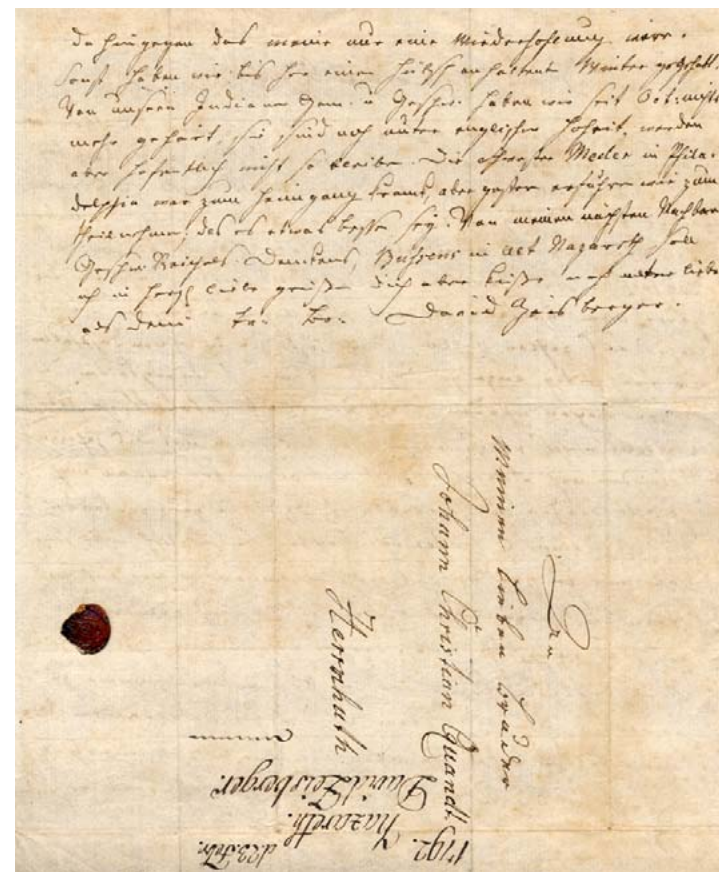 da hingegen das meine nur eine Wiederhohlung wäre.
Sonst haben wir bis her einen hübsch anhaltent Winter gehabt.
Von unsern Indianer Gem. u Geschw. haben wir seit Oct. nichts
mehr gehört, sie sind noch unter englischer Hoheit, werden
aber hofentlich nicht so bleiben. Die Schwester Meder in Phila-
delphia war zum Heimgang krank, aber gestern erfuhren wir zum
theilnehmen, das es etwas besser sey. Von meinen nächsten Nachbarn
Geschw. Reichels, Bensiens in alt Nazareth soll
ich in herzl. Liebe grüßen Dich aber küße
als dein Br. David Zeisberger.
Den
Meinen Lieben Bruder
Johann Christian Quandt.
Herrnhuth
1792.
Nazareth. d 23. Febr.
David Zeisberger.